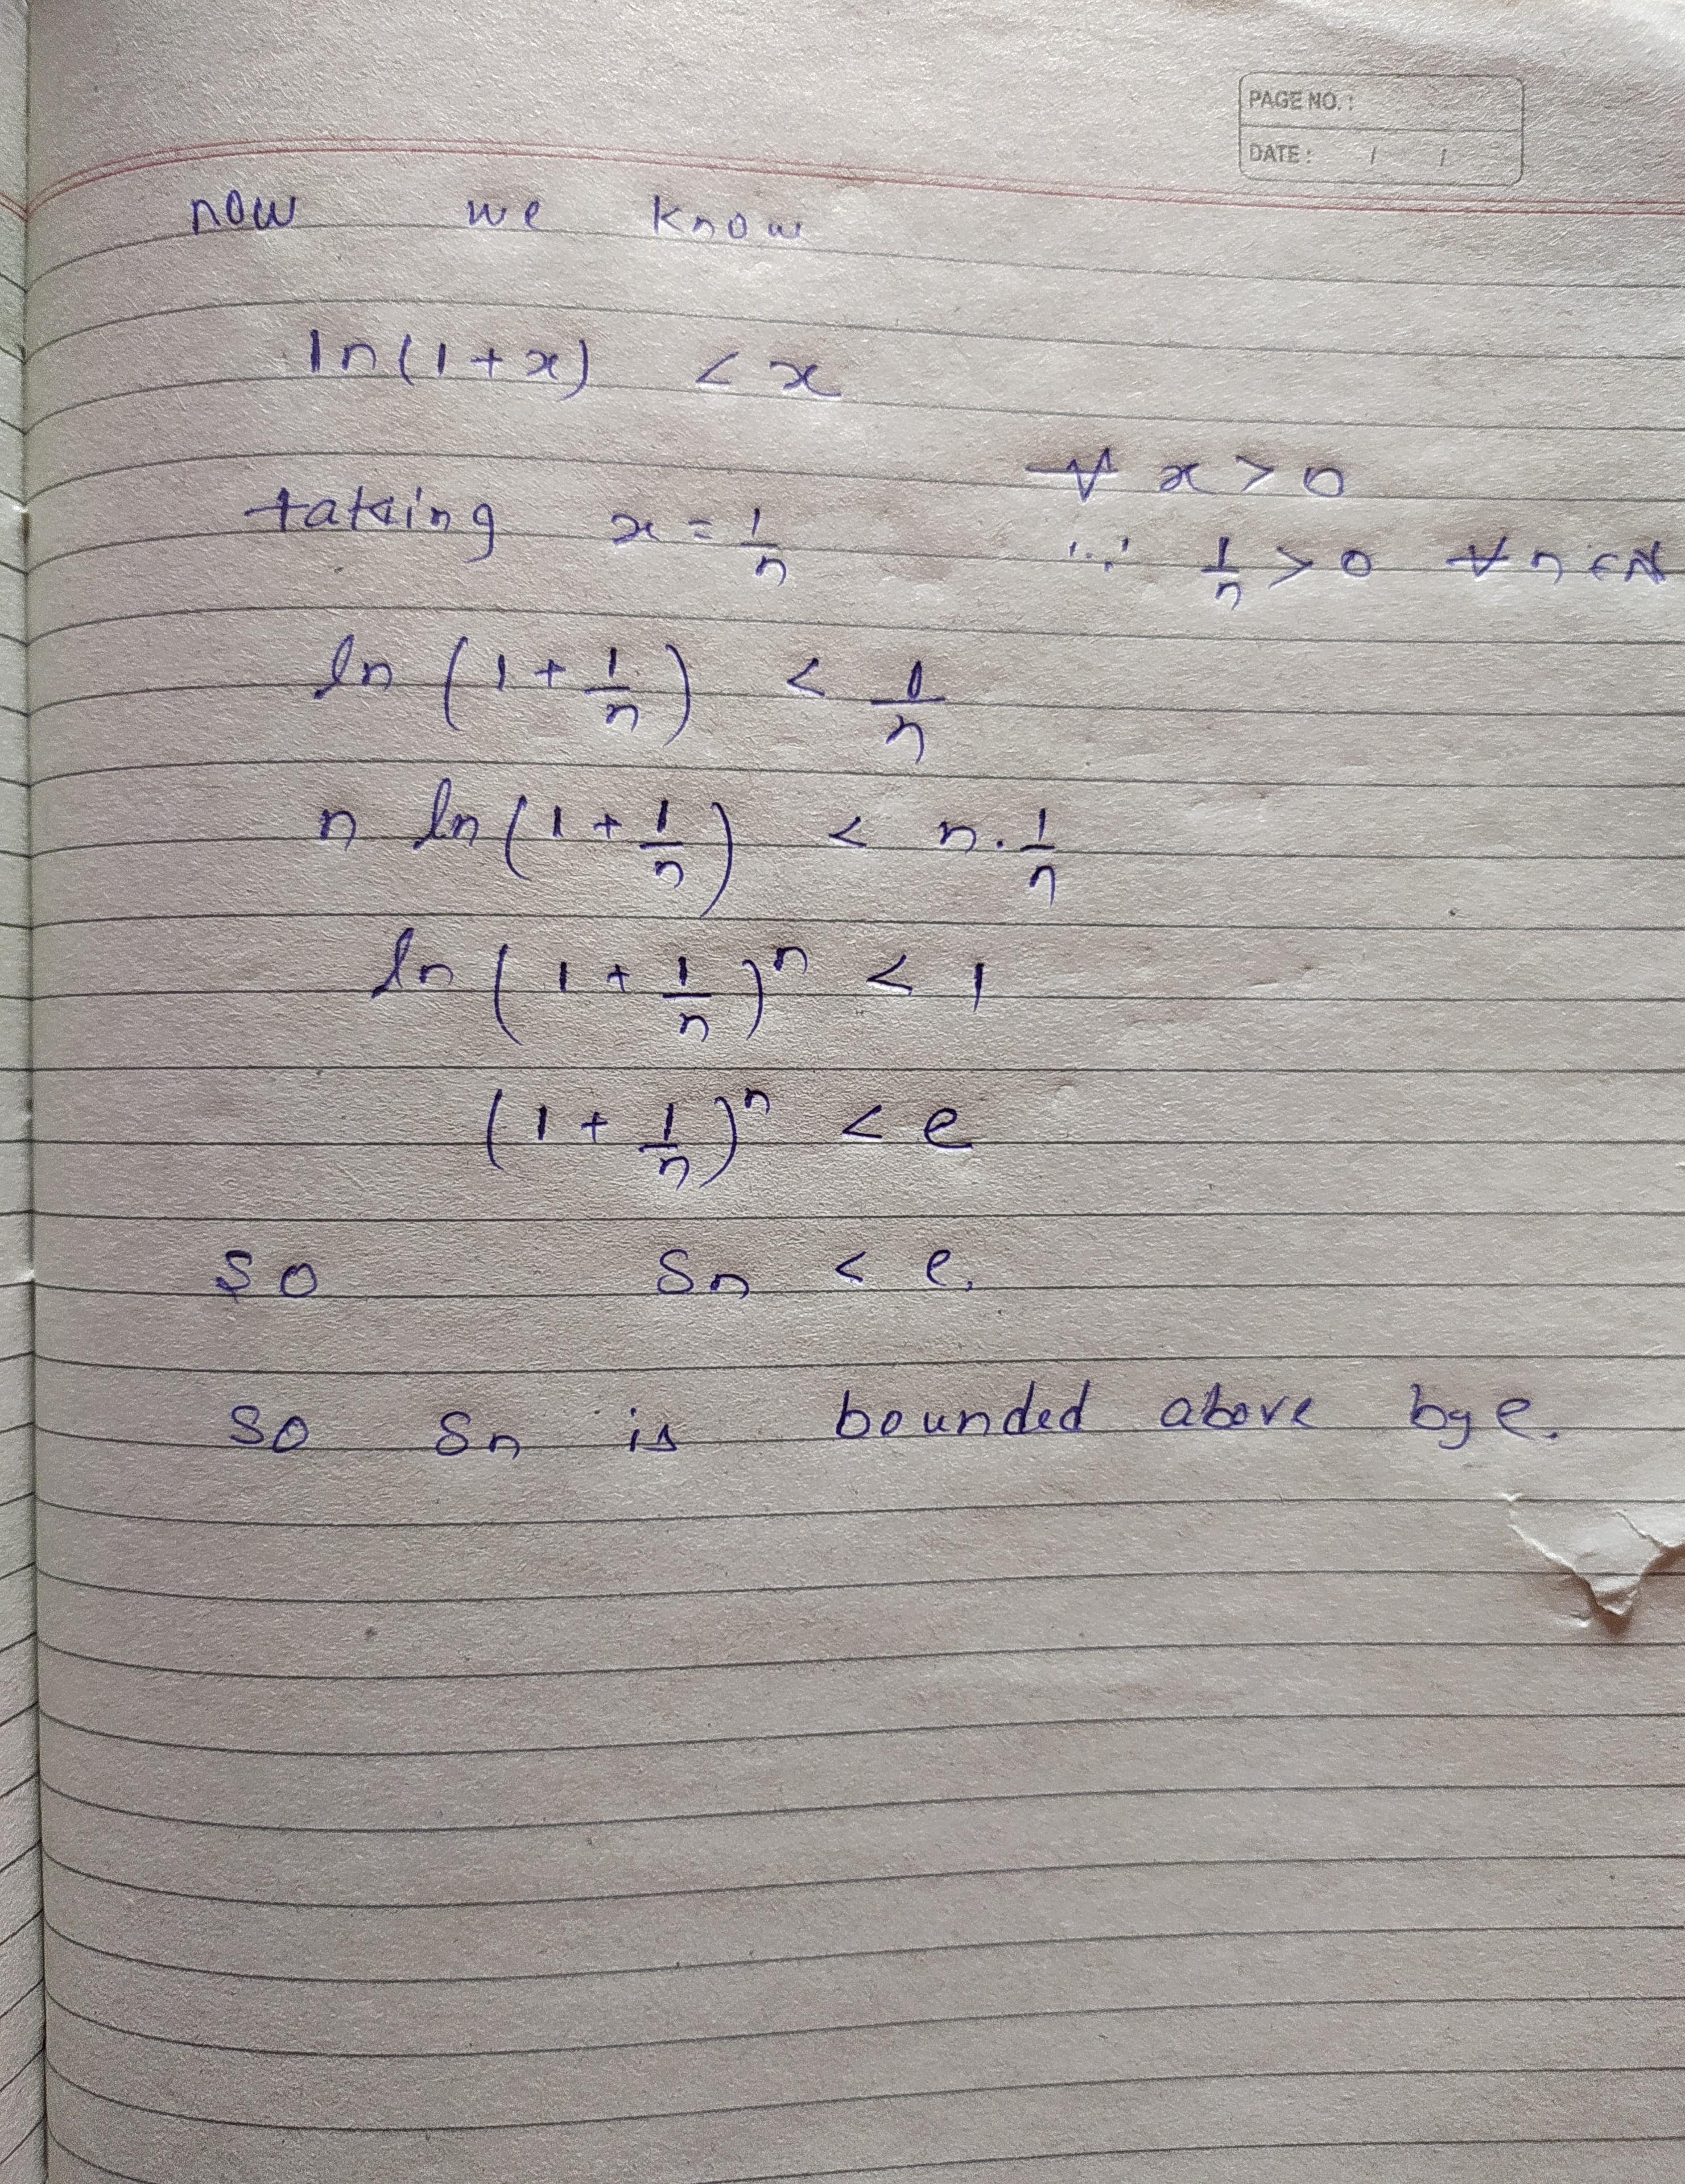 PAGE NO. :
DATE : / /
now we know
ln(1+x) < x
∀ x > 0
taking x = 1/n ∵ 1/n > 0 ∀ n ∈ N
ln (1 + 1/n) < 1/n
n ln (1 + 1/n) < n. 1/n
ln (1 + 1/n)ⁿ < 1
(1 + 1/n)ⁿ < e
so Sn < e.
so Sn is bounded above by e.